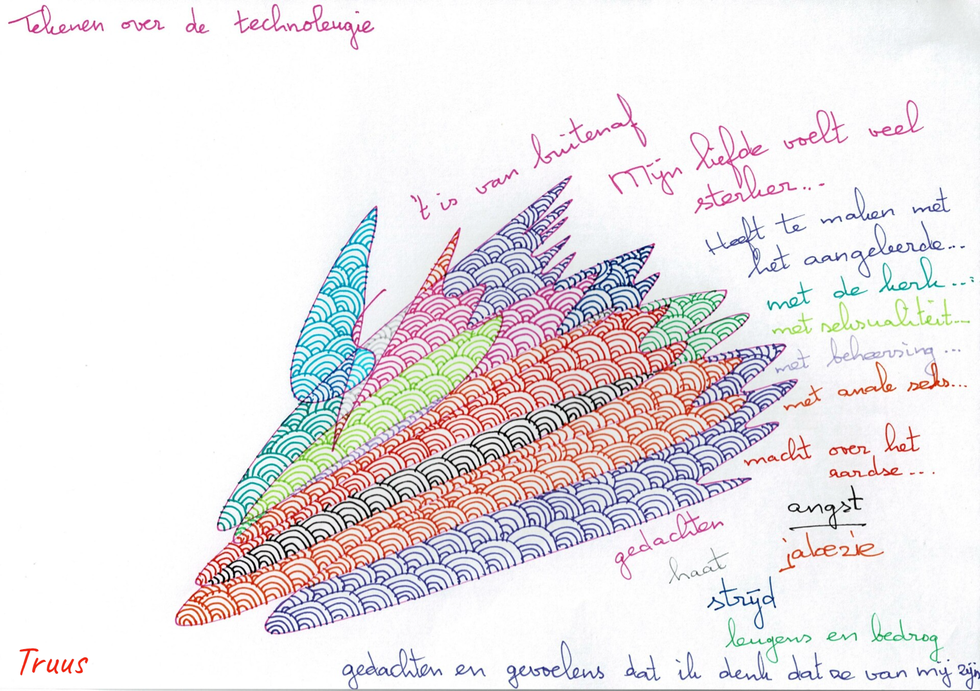 Tekenen over de technoleugie
't is van buitenaf
Mijn liefde voelt veel
sterker...
Heeft te maken met
het aangeleerde...
met de kerk...
met seksualiteit...
met beheersing...
met anale seks...
macht over het
aardse...
angst
jaloezie
gedachten
haat
strijd
leugens en bedrog
Truus
gedachten en gevoelens dat ik denk dat ze van mij zijn